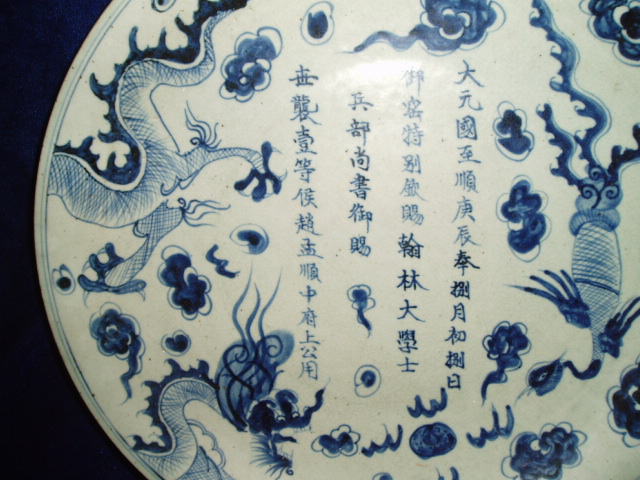 大元國至順庚辰奉捌月初捌日
御窑特别欽賜翰林大學士
兵部尚書御賜
世襲壹等侯趙孟順中府上公用